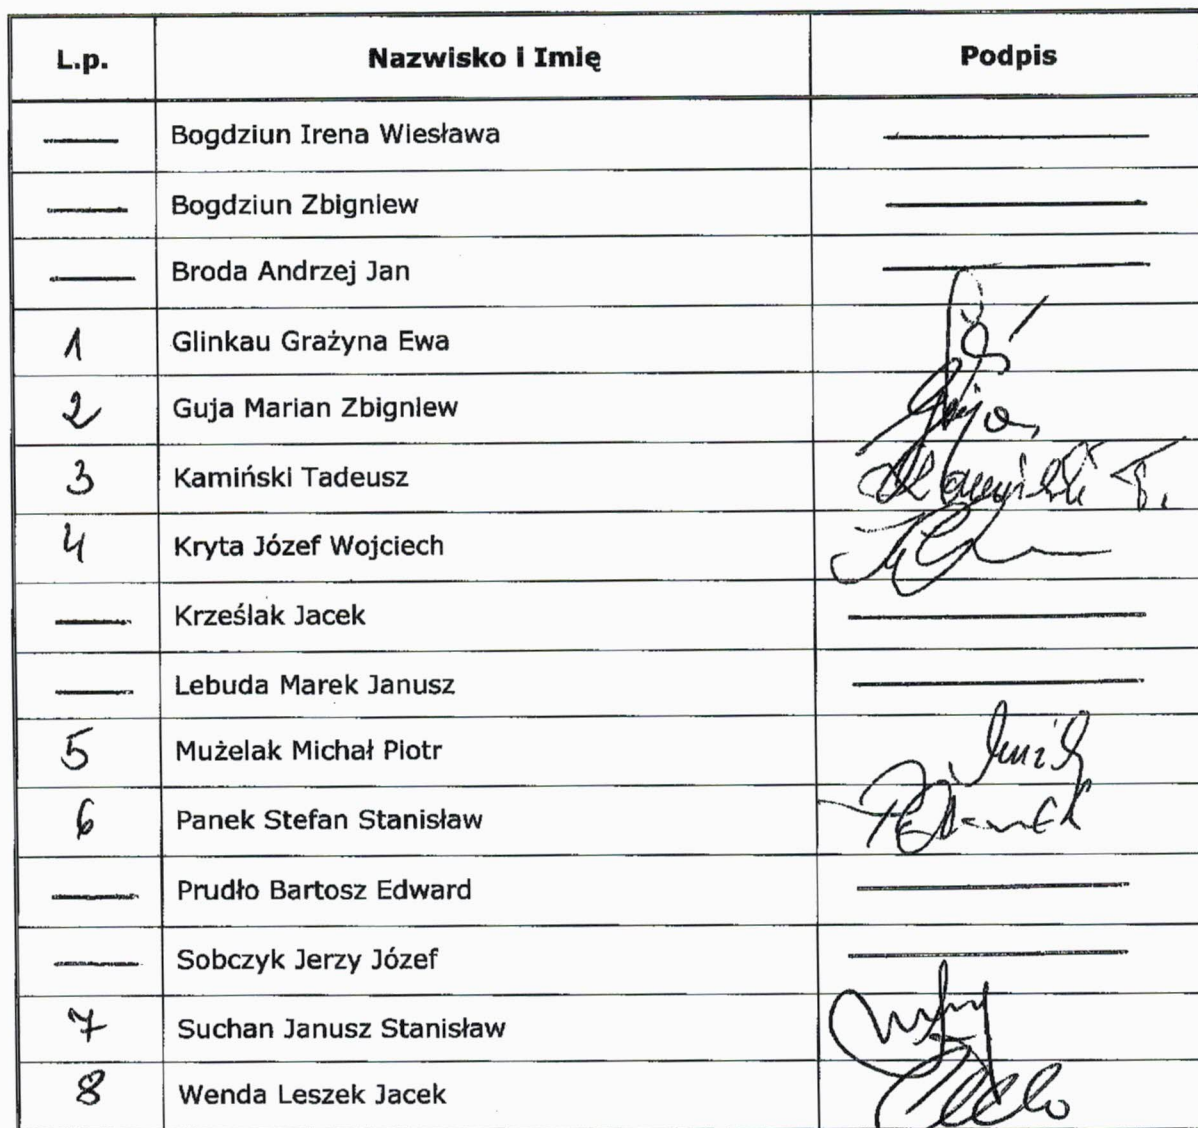 L.p. Nazwisko i Imię Podpis
Bogdziun Irena Wiesława
Bogdziun Zbigniew
Broda Andrzej Jan
1 Glinkau Grażyna Ewa
2 Guja Marian Zbigniew
3 Kamiński Tadeusz Kamiński T.
4 Kryta Józef Wojciech
Krześlak Jacek
Lebuda Marek Janusz
5 Mużelak Michał Piotr
6 Panek Stefan Stanisław
Prudło Bartosz Edward
Sobczyk Jerzy Józef
7 Suchan Janusz Stanisław
8 Wenda Leszek Jacek